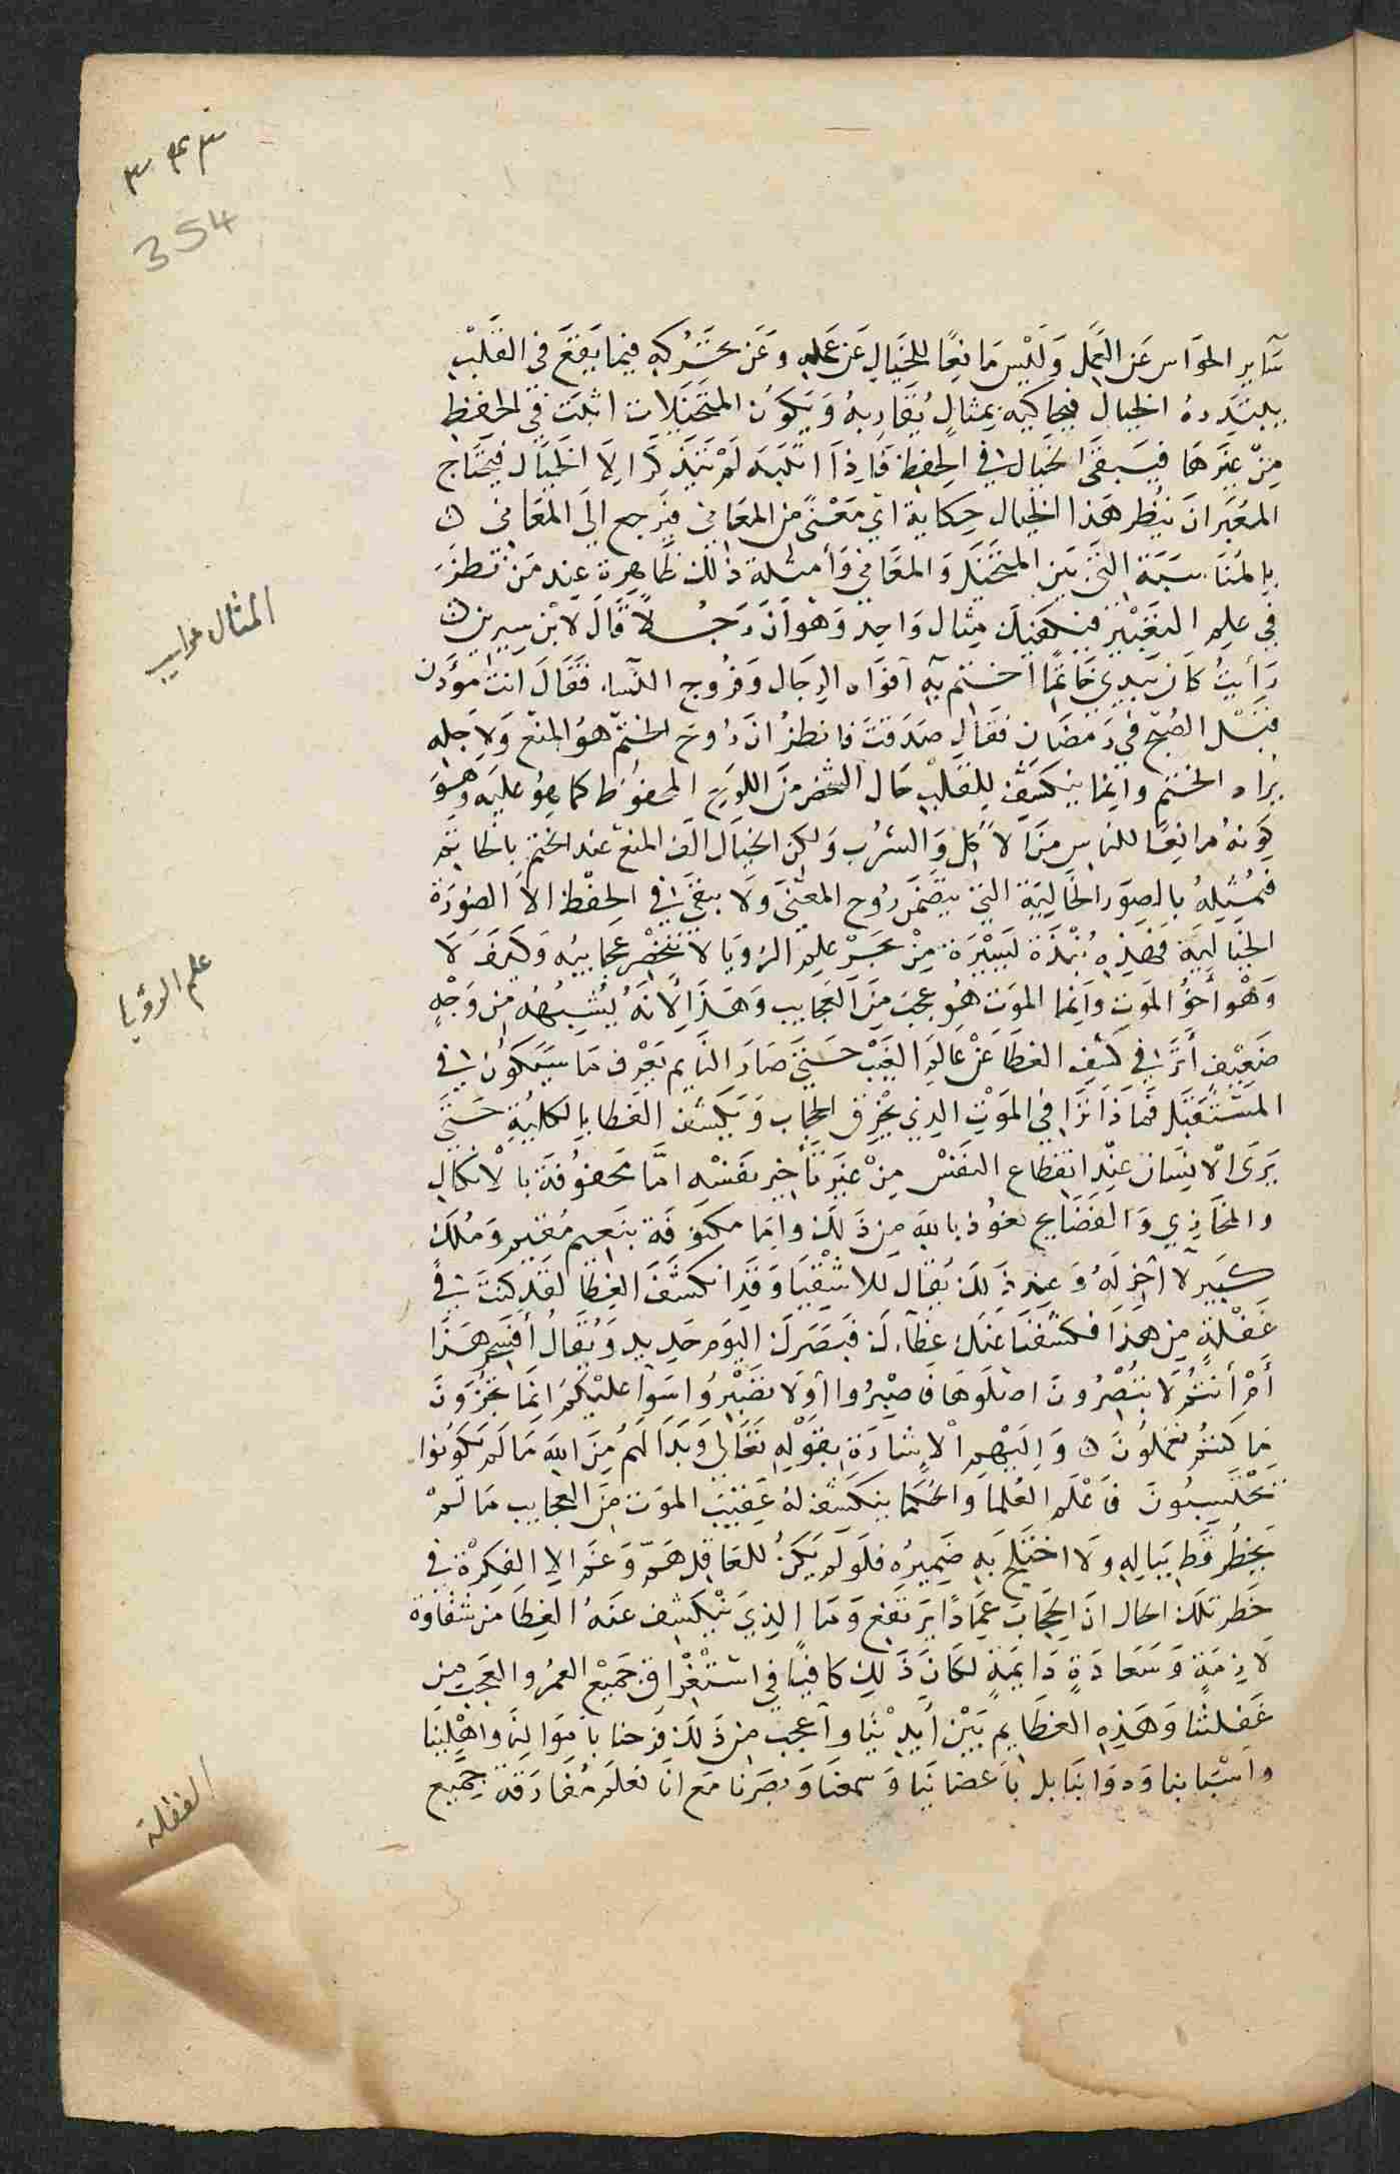 ٣٤٣
354
سآير الحواس عن العمل وليس مانعًا للخيال عن عمله وعن تحركه فيما يقع في القلب
يبتدره الخيال فيحاكيه بمثال يقاربه ويكون المتخيلات اثبت في الحفظ
من غيرها فيبقى الخيال في الحفظ فاذا انتبه لم يتذكر الا الخيال فيحتاج
المعبر ان ينظر هذا الخيال حكاية اي معنًى من المعاني فيرجع الى المعاني
بالمناسبة التي بين المتخيل والمعاني وأمثلة ذلك ظاهرة عند من نظر
في علم التعبير فيكفيك مثال واحد وهو ان رجلاً قال لابن سيرين
رأيت كان بيدي خاتمًا اختم به آفواه الرجال وفروج النسآ. فقال انت مؤذن
قبل الصبح في رمضان فقال صدقت فانظر ان روح الختم هو المنع ولاجله
يراد الختم وانما ينكشف للقلب حال الشخص من اللوح المحفوظ كما هو عليه وهو
كونه مانعًا للناس من الاكل والشرب ولكن الخيال الف المنع عند الختم بالخاتم
فمثله بالصور الخالية التي يتضمن روح المعنى ولا يبقى في الحفظ الا الصورة
الخيالية فهذه نبذة يسيرة من بحر علم الرويا لا تنحصر عجايبه وكيف لا
وهو أخو الموت وانما الموت هو عجب من العجايب وهذا لأنه يشبهه من وجه
ضعيف أثر في كشف الغطا عن عالم الغيب حتى صار النايم يعرف ما سيكون في
المستقبل فماذا ترا في الموت الذي يخرق الحجاب ويكشف الغطا بالكلية حتى
يرى الانسان عند انقطاع النفس من غير تأخير نفسه امّا محفوفة بالانكال
والمخازي والفضايح نعوذ بالله من ذلك وامّا مكنوفة بنعيم مقيم وملك
كبير لا آخر له وعند ذلك يقال للاشقيا وقد انكشف الغطا لقد كنت في
غفلة من هذا فكشفنا عنك غطآءك فبصرك اليوم حديد ويقال أفسحر هذا
أم أنتم لا تبصرون اصلوها فاصبروا أولا تصبروا سوا عليكم انما تجزون
ما كنتم تعملون واليهم الاشارة بقوله تعالى وبدا لهم من الله ما لم يكونوا
يحتسبون فأعلم العلما والحكما ينكشف له عقيب الموت من العجايب ما لم
يخطر قط بباله ولا اختلج به ضميره فلو لم يكن للعاقل همّ وغم الا الفكرة في
خطر تلك الحال ان الحجاب عمادًا يرتفع وما الذي ينكشف عنه الغطا من شقاوة
لازمة وسعادة دايمة لكان ذلك كافيًا في استغراق جميع العمر والعجب من
غفلتنا وهذه العظايم بين أيدينا واعجب من ذلك فرحنا باموالنا واهلينا
واسبابنا ودوابنا بل باعضائنا وسمعنا وبصرنا مع انا نعلم مفارقة جميع
المثال غرايب
علم الرؤيا
الغفلة